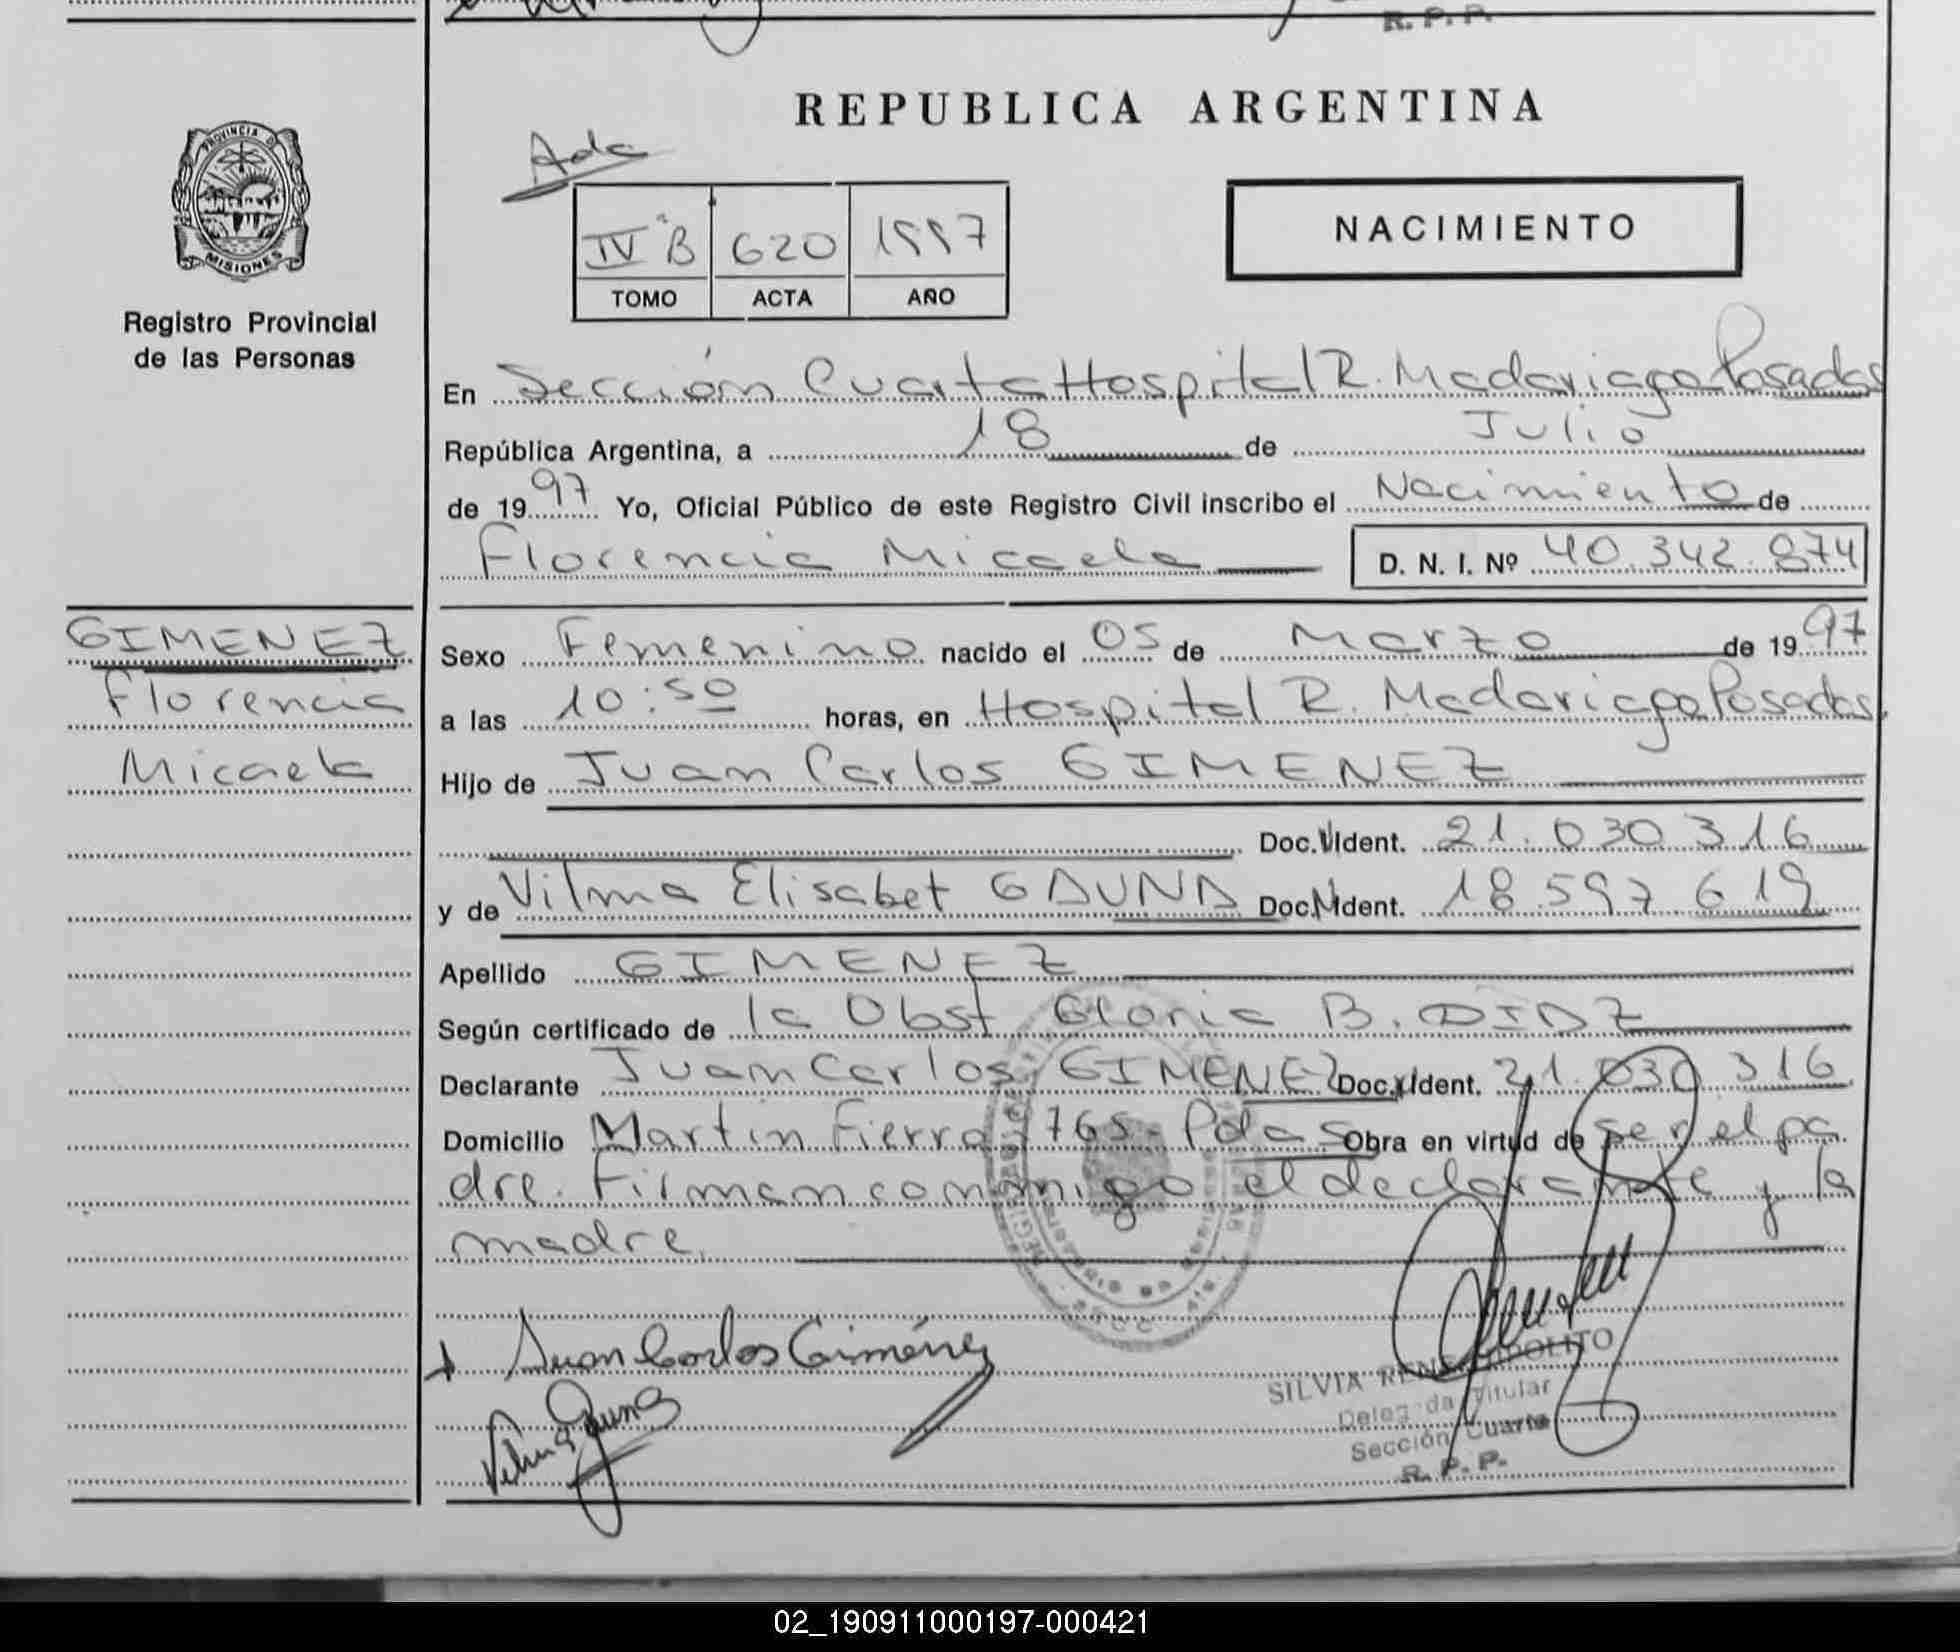 R. P. P.
REPUBLICA ARGENTINA
Ada
PROVINCIA D
MISIONES
Registro Provincial
de las Personas
IV B 620 1997
TOMO ACTA AÑO
NACIMIENTO
En Sección Cuarta Hospital R. Madariaga Posadas
República Argentina, a 18 de Julio
de 1997 Yo, Oficial Público de este Registro Civil inscribo el Nacimiento de
Florencia Micaela D. N. I. Nº 40.342.874
GIMENEZ
Florencia
Micaela
Sexo Femenino nacido el 05 de Marzo de 1997
a las 10:50 horas, en Hospital R. Madariaga Posadas
Hijo de Juan Carlos GIMENEZ
Doc. Ident. 21.030.316
y de Vilma Elisabet GAUNA Doc. Ident. 18.597.619
Apellido GIMENEZ
Según certificado de la Obst Gloria B. DIAZ
Declarante Juan Carlos GIMENEZ Doc. Ident. 21.030.316
Domicilio Martin Fierro 1765 - Pdas Obra en virtud de ser el pa
dre. Firman conmigo el declarante y la
madre.
Juan Carlos Giménez
Vilma Gauna
SILVIA RENE HIPOLITO
Delegada Titular
Sección Cuarta
R. P. P.
02_190911000197-000421